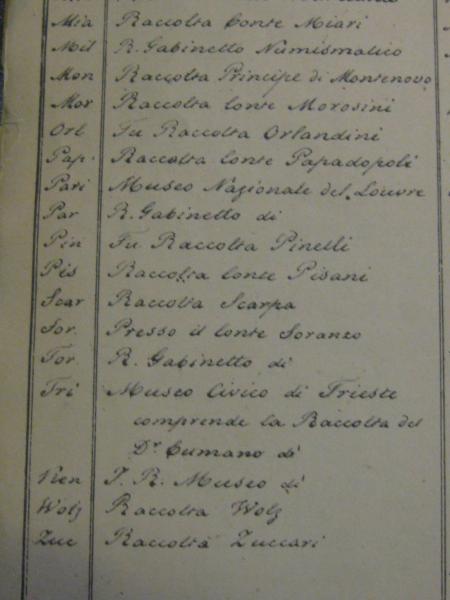 Mia Raccolta Conte Miari
Mil R. Gabinetto Numismatico
Mon Raccolta Principe di Montenovo
Mor Raccolta Conte Morosini
Orl Fu Raccolta Orlandini
Pap. Raccolta Conte Papadopoli
Pari Museo Nazionale del Louvre
Par R. Gabinetto di
Pin Fu Raccolta Pinelli
Pis Raccolta Conte Pisani
Scar Raccolta Scarpa
Sor. Presso il Conte Soranzo
Tor. R. Gabinetto di
Tri Museo Civico di Trieste
comprende la Raccolta del
Dr Cumano di
Ven I. R. Museo di
Wolz Raccolta Wolz
Zuc Raccolta Zuccari